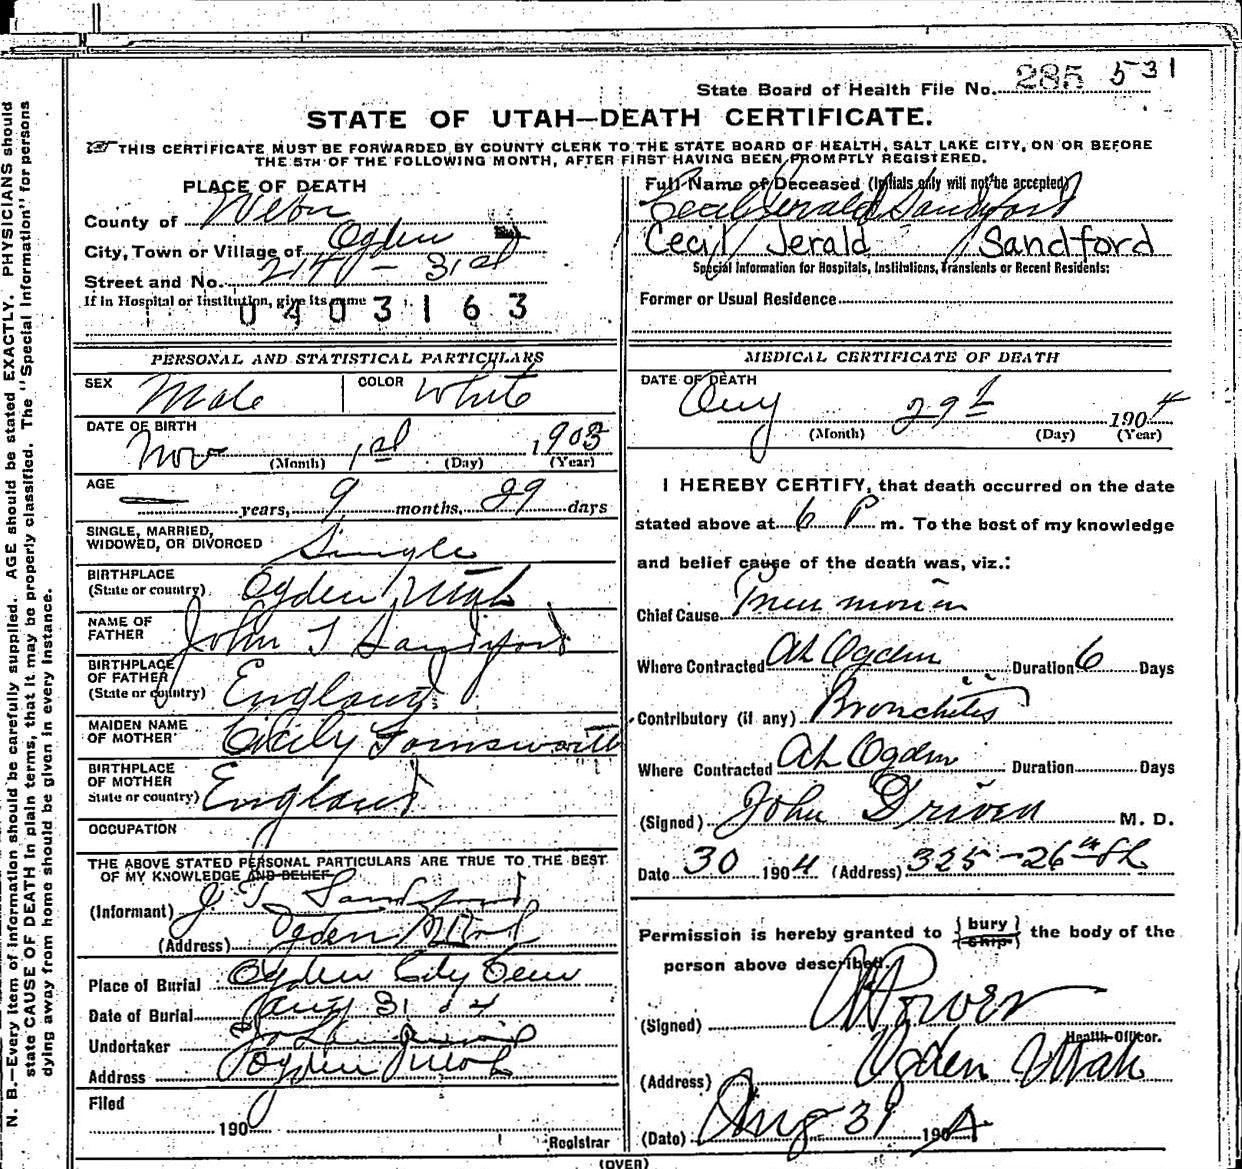 State Board of Health File No. 285 531
STATE OF UTAH—DEATH CERTIFICATE.
THIS CERTIFICATE MUST BE FORWARDED BY COUNTY CLERK TO THE STATE BOARD OF HEALTH, SALT LAKE CITY, ON OR BEFORE
THE 5TH OF THE FOLLOWING MONTH, AFTER FIRST HAVING BEEN PROMPTLY REGISTERED.
PLACE OF DEATH
County of Weber
City, Town or Village of Ogden
Street and No. 31st
If in Hospital or Institution, give its name
0403163
Full Name of Deceased (Initials only will not be accepted)
Cecil Jerald Sandford
Cecil Jerald Sandford
Special Information for Hospitals, Institutions, Transients or Recent Residents:
Former or Usual Residence
PERSONAL AND STATISTICAL PARTICULARS
SEX Male COLOR White
DATE OF BIRTH
Nov 1st 1903
(Month) (Day) (Year)
AGE
— years, 9 months, 29 days
SINGLE, MARRIED,
WIDOWED, OR DIVORCED Single
BIRTHPLACE
(State or country) Ogden Utah
NAME OF
FATHER John T Sandford
BIRTHPLACE
OF FATHER
(State or country) England
MAIDEN NAME
OF MOTHER Cicily Farnsworth
BIRTHPLACE
OF MOTHER
State or country) England
OCCUPATION
THE ABOVE STATED PERSONAL PARTICULARS ARE TRUE TO THE BEST
OF MY KNOWLEDGE AND BELIEF
(Informant) J T Sandford
(Address) Ogden Utah
Place of Burial Ogden City Cem
Date of Burial Aug 31 04
Undertaker
Address Ogden Utah
Filed
190
Registrar
MEDICAL CERTIFICATE OF DEATH
DATE OF DEATH
Aug 29t 1904
(Month) (Day) (Year)
I HEREBY CERTIFY, that death occurred on the date
stated above at 6 P m. To the best of my knowledge
and belief cause of the death was, viz.:
Chief Cause Pneumonia
Where Contracted At Ogden Duration 6 Days
Contributory (if any) Bronchitis
Where Contracted At Ogden Duration Days
(Signed) John Driven M. D.
Date 30 1904 (Address) 325-26th St
Permission is hereby granted to {bury ship} the body of the
person above described.
(Signed) Power
Health Officer.
(Address) Ogden Utah
(Date) Aug 31 1904
(OVER)
N. B.—Every item of information should be carefully supplied. AGE should be stated EXACTLY. PHYSICIANS should
state CAUSE OF DEATH in plain terms, that it may be properly classified. The "Special Information" for persons
dying away from home should be given in every instance.